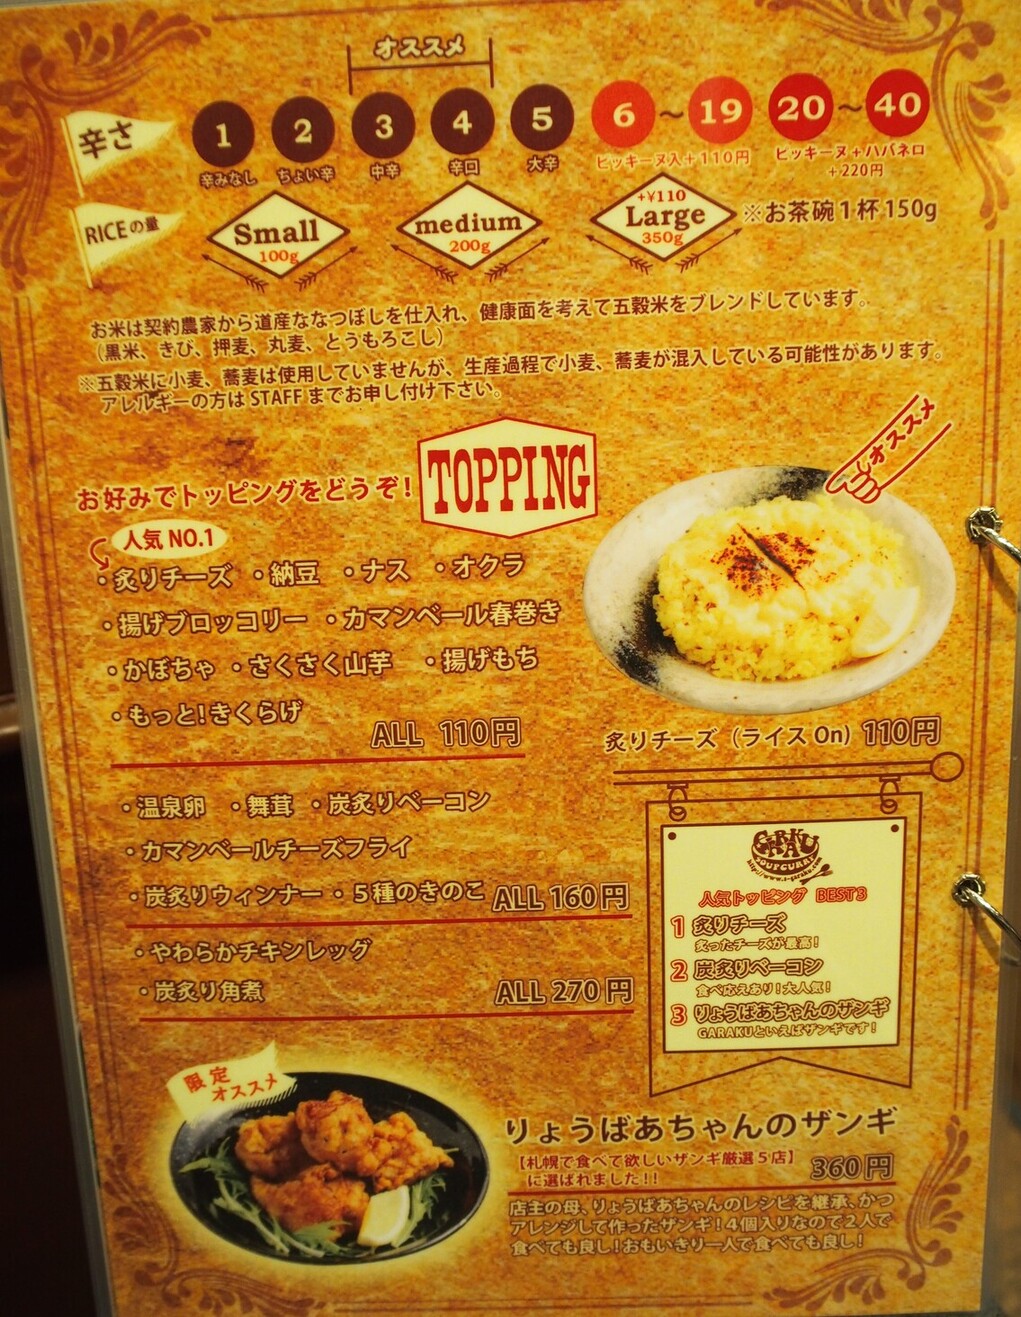 オススメ
辛さ
1 2 3 4 5 6 ～ 19 20 ～ 40
辛みなし ちょい辛 中辛 辛口 大辛 ピッキーヌ入+110円 ピッキーヌ+ハバネロ
+220円
RICEの量
Small
100g
medium
200g
+¥110
Large
350g
※お茶碗1杯150g
お米は契約農家から道産ななつぼしを仕入れ、健康面を考えて五穀米をブレンドしています。
（黒米、きび、押麦、丸麦、とうもろこし）
※五穀米に小麦、蕎麦は使用していませんが、生産過程で小麦、蕎麦が混入している可能性があります。
アレルギーの方はSTAFFまでお申し付け下さい。
お好みでトッピングをどうぞ!
TOPPING
オススメ
人気 NO.1
・炙りチーズ ・納豆 ・ナス ・オクラ
・揚げブロッコリー ・カマンベール春巻き
・かぼちゃ ・さくさく山芋 ・揚げもち
・もっと!きくらげ
ALL 110円
炙りチーズ（ライスOn）110円
・温泉卵 ・舞茸 ・炭炙りベーコン
・カマンベールチーズフライ
・炭炙りウィンナー ・5種のきのこ
ALL 160円
・やわらかチキンレッグ
・炭炙り角煮
ALL 270円
GARAKU
SOUPCURRY
http://www.s-garaku.com
人気トッピング BEST3
1 炙りチーズ
炙ったチーズが最高!
2 炭炙りベーコン
食べ応えあり!大人気!
3 りょうばあちゃんのザンギ
GARAKUといえばザンギです!
限定
オススメ
りょうばあちゃんのザンギ
【札幌で食べて欲しいザンギ厳選5店】
に選ばれました!!
360円
店主の母、りょうばあちゃんのレシピを継承、かつ
アレンジして作ったザンギ!4個入りなので2人で
食べても良し!おもいきり一人で食べても良し!